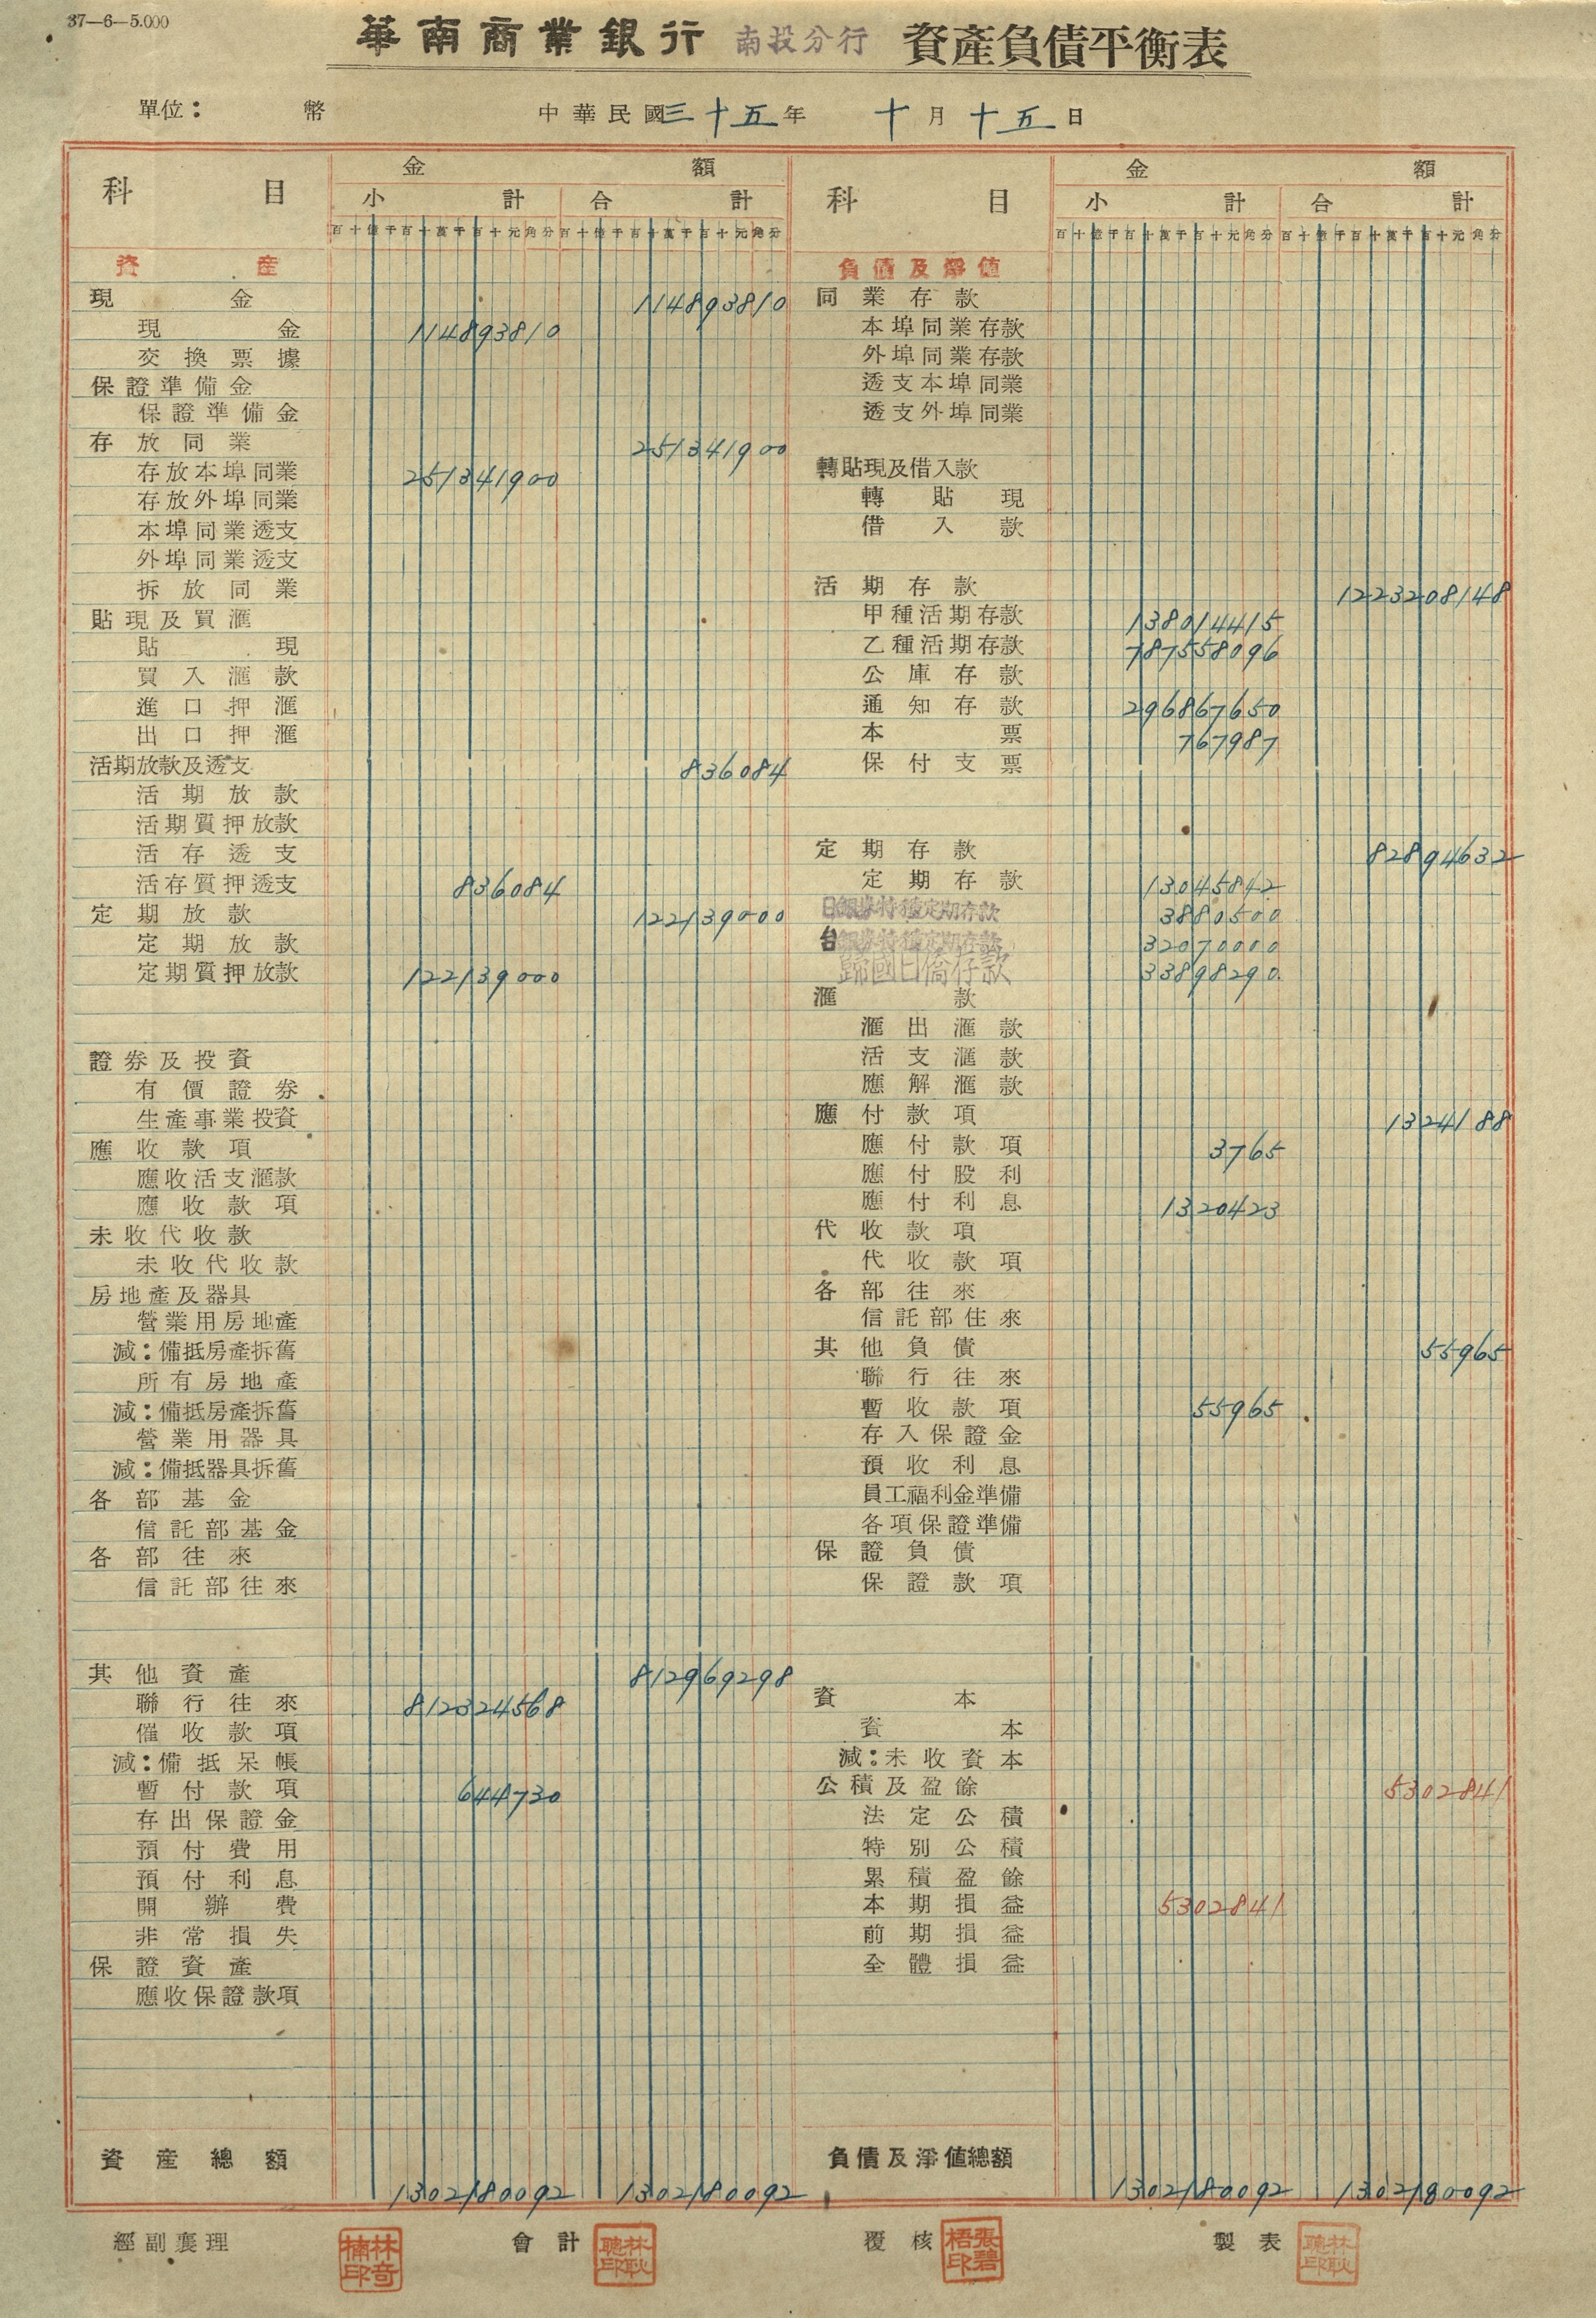 37—6—5.000
華南商業銀行 南投分行 資產負債平衡表
單位： 幣 中華民國三十五年 十月十五日
科目 金額 科目 金額
小計 合計 小計 合計
百十億千百十萬千百十元角分 百十億千百十萬千百十元角分 百十億千百十萬千百十元角分 百十億千百十萬千百十元角分
資產
現金 114893810
現金 114893810
交換票據
保證準備金
保證準備金
存放同業 251341900
存放本埠同業 251341900
存放外埠同業
本埠同業透支
外埠同業透支
拆放同業
貼現及買滙
貼現
買入滙款
進口押滙
出口押滙
活期放款及透支 836084
活期放款
活期質押放款
活存透支
活存質押透支 836084
定期放款 122139000
定期放款
定期質押放款 122139000
證券及投資
有價證券
生產事業投資
應收款項
應收活支滙款
應收款項
未收代收款
未收代收款
房地產及器具
營業用房地產
減：備抵房產拆舊
所有房地產
減：備抵房產拆舊
營業用器具
減：備抵器具拆舊
各部基金
信託部基金
各部往來
信託部往來
其他資產 812969298
聯行往來 812324568
催收款項
減：備抵呆帳
暫付款項 644730
存出保證金
預付費用
預付利息
開辦費
非常損失
保證資產
應收保證款項
資產總額 1302180092 1302180092
負債及淨值
同業存款
本埠同業存款
外埠同業存款
透支本埠同業
透支外埠同業
轉貼現及借入款
轉貼現
借入款
活期存款 1223208148
甲種活期存款 138014415
乙種活期存款 787558096
公庫存款
通知存款 296867650
本票 767987
保付支票
定期存款 82894632
定期存款 13045842
日銀券特種定期存款 3880500
台銀券特種定期存款 32070000
歸國日僑存款 33898290
滙款
滙出滙款
活支滙款
應解滙款
應付款項 1324188
應付款項 3765
應付股利
應付利息 1320423
代收款項
代收款項
各部往來
信託部往來
其他負債 55965
聯行往來
暫收款項 55965
存入保證金
預收利息
員工福利金準備
各項保證準備
保證負債
保證款項
資本
資本
減：未收資本
公積及盈餘 5302841
法定公積
特別公積
累積盈餘
本期損益 5302841
前期損益
全體損益
負債及淨值總額 1302180092 1302180092
經副襄理 林奇楠印 會計 林耿聰印 覆核 張碧梧印 製表 林耿聰印